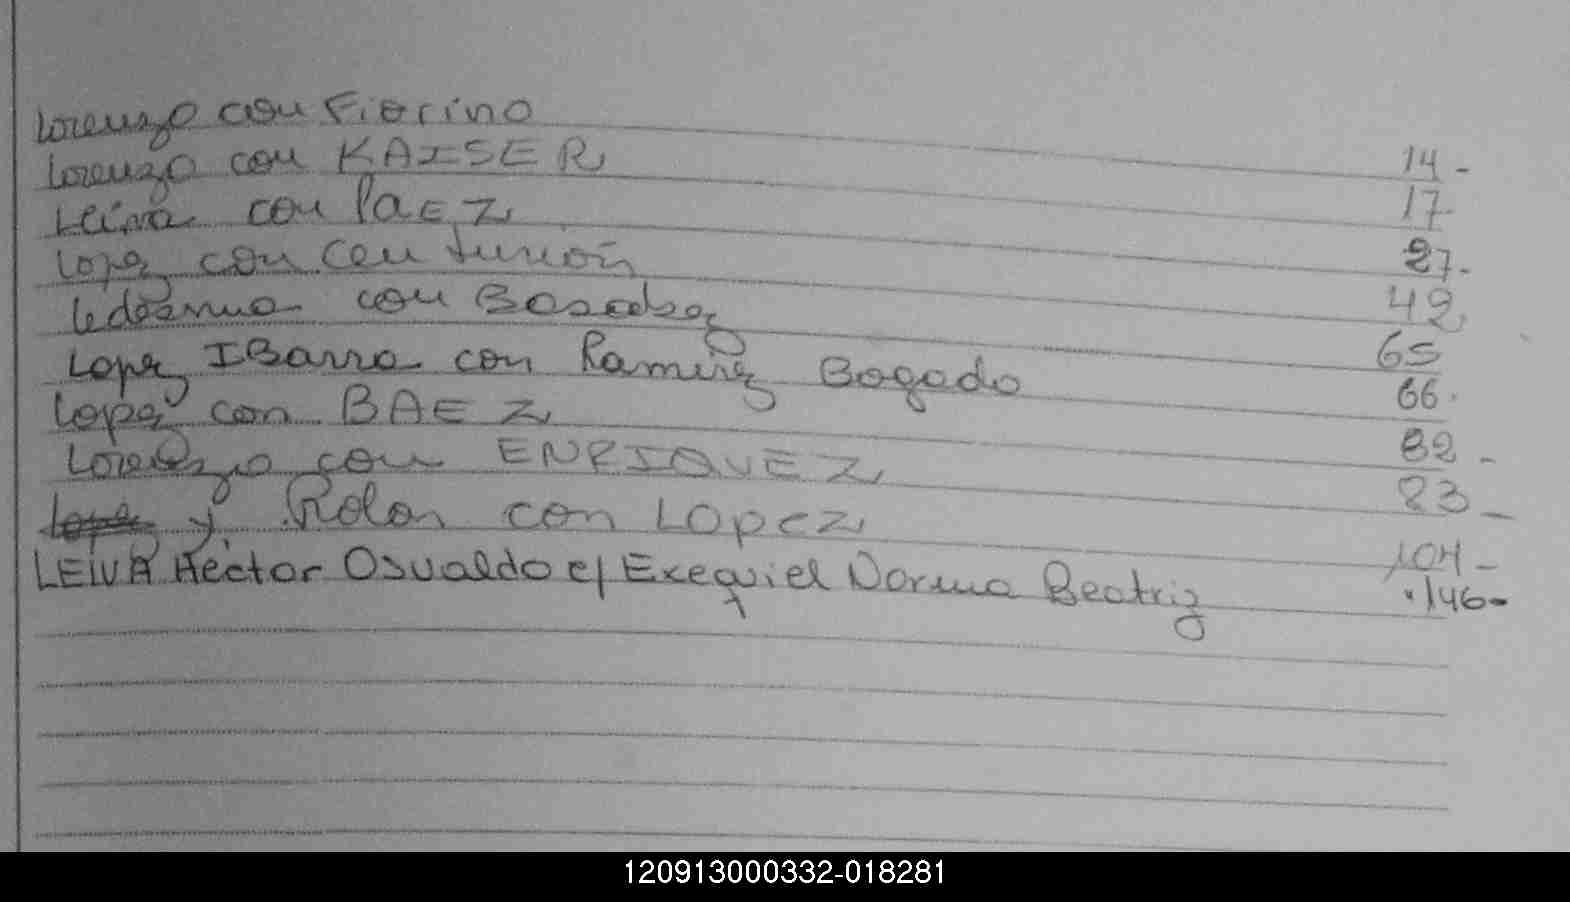 Lorenzo con Fiorino 14-
Lorenzo con KAISER 17
Leiva con PaEZ 27-
Lopez con Centurión 42
Ledesma con 65
Lopez IBarra con Ramirez Bogado 66.
Lopez con BAEZ 82-
Lorenzo con ENRIQUEZ 83-
y Rolon con LOpez 104-
LEIVA Héctor Osvaldo c/ Exequiel Norma Beatriz 146-
120913000332-018281